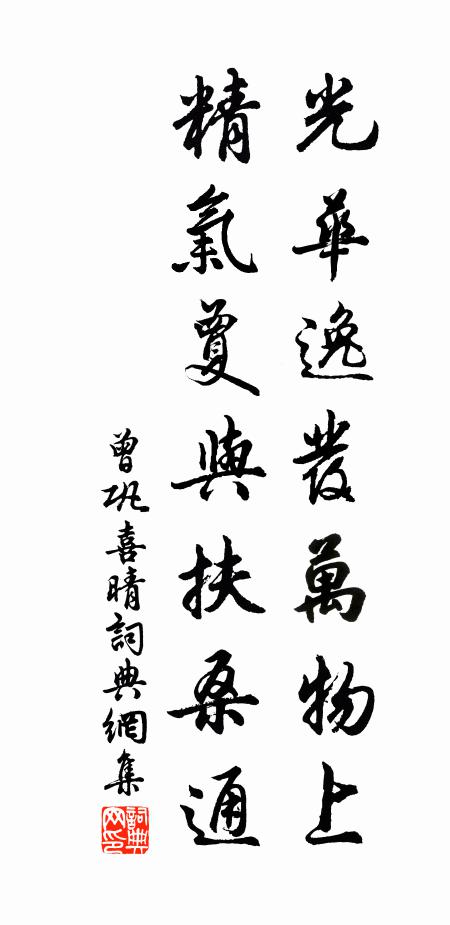 光華逸發萬物上
精氣夐與扶桑通
曾巩喜晴詞典網集
詞典
网印